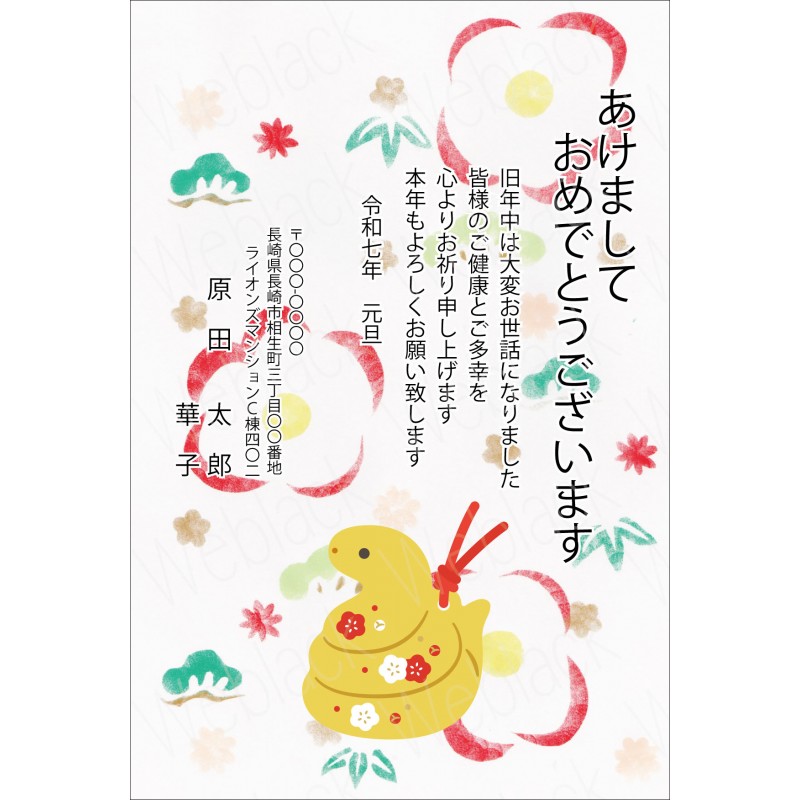 あけまして
おめでとうございます
旧年中は大変お世話になりました
皆様のご健康とご多幸を
心よりお祈り申し上げます
本年もよろしくお願い致します
令和七年　元旦
〒〇〇〇-〇〇〇〇
長崎県長崎市相生町三丁目〇〇番地
ライオンズマンションC棟四〇二
原田　太郎
華子
Weblack